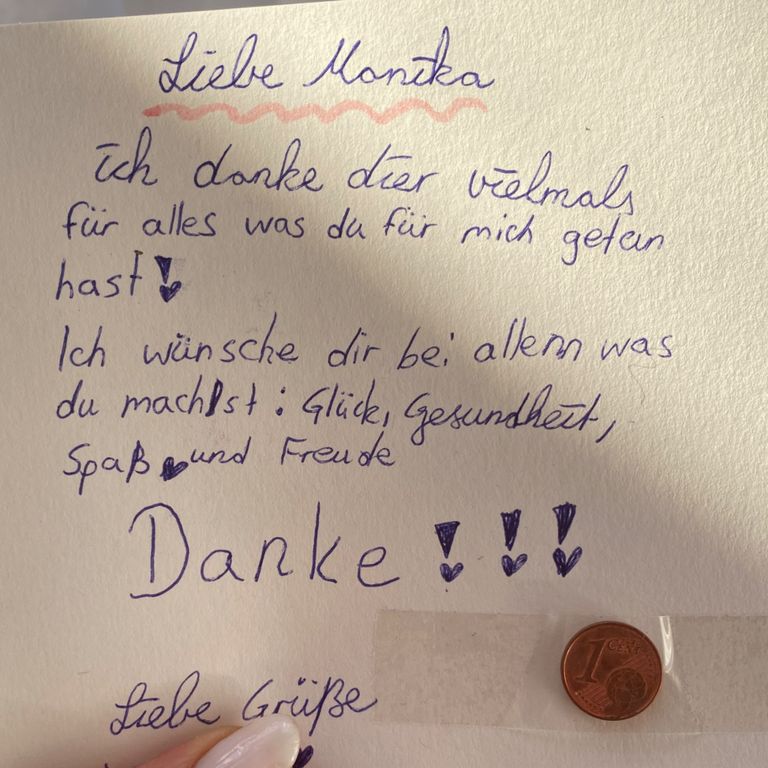 Liebe Monika
ich danke dier vielmals
für alles was du für mich getan
hast!
Ich wünsche dir bei allem was
du machst: Glück, Gesundheit,
Spaß und Freude
Danke!!!
1 CENT
Liebe Grüße